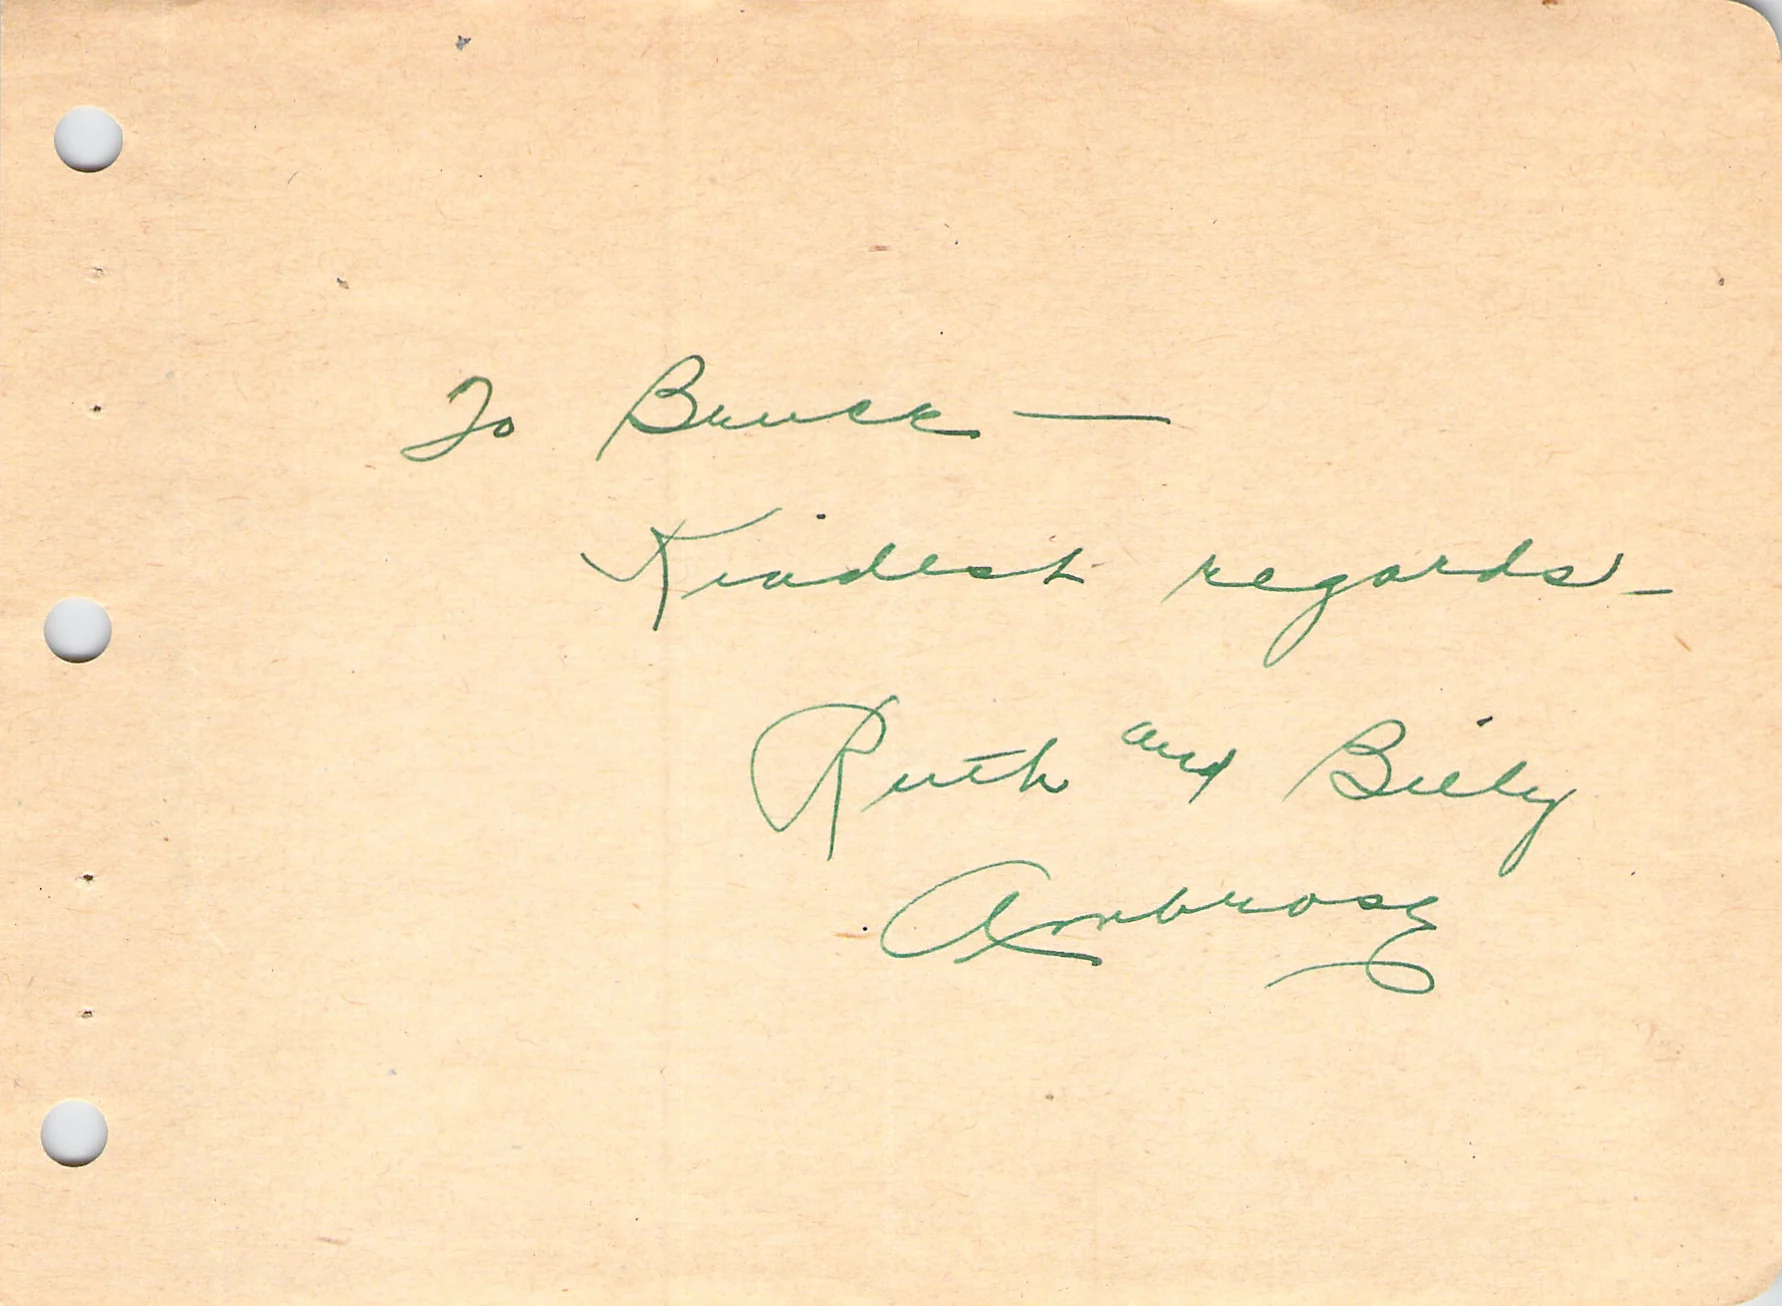 To Bruce —
Kindest regards –
Ruth and Billy
Ambrose